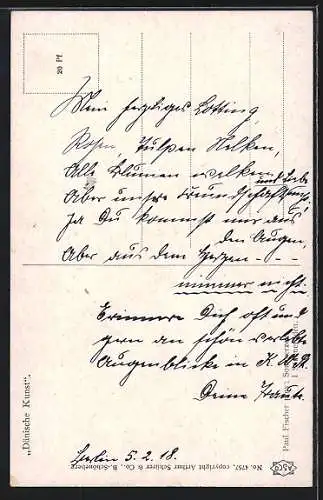 20 Pf
Mein herziges Lotting,
Rosen, Tulpen Nelken,
Alle Blumen welken
Aber unsre Freundschaft und Liebe
Ja Du kommst mir aus
den Augen,
Aber aus dem Herzen - - -
nimmer nicht.
Erinnere Dich oft und
gern an schön verlebte
Augenblicke in
Deine Traute
Berlin 5. 2. 18.
„Dänische Kunst".
No. 4757, copyright Arthur Schürer & Co., B.-Schöneberg
Paul Fischer
ASCO